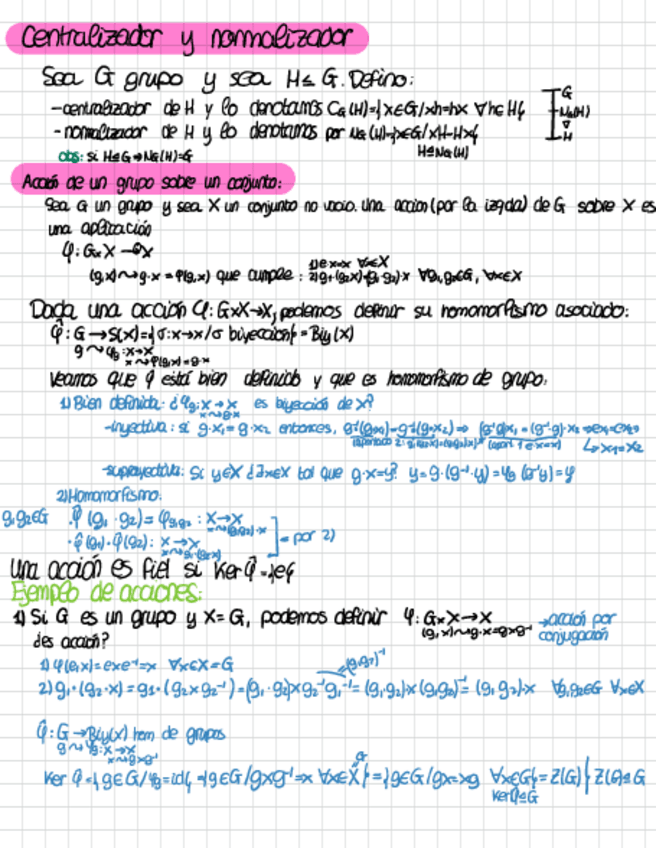 Centralizador y normalizador
Sea G grupo y sea H≤G. Defino:
-centralizador de H y lo denotamos C_G(H)={x∈G/xh=hx ∀h∈H}
-normalizador de H y lo denotamos por N_G(H)={x∈G/xH=Hx}
H⊴N_G(H)
G
N_G(H)
▽
H
obs: si H⊴G ⇒ N_G(H)=G
Acción de un grupo sobre un conjunto:
Sea G un grupo y sea X un conjunto no vacio. Una accion (por la izqda) de G sobre X es
una aplicación
φ: G×X → X
(g,x) ⇝ g·x = φ(g,x) que cumple: 1) e·x=x ∀x∈X
2) g₁·(g₂·x)=(g₁·g₂)·x ∀g₁,g₂∈G, ∀x∈X
Dada una acción φ: G×X→X, podemos definir su homomorfismo asociado:
φ̂: G → S(X)={σ:x→x/σ biyección}=Biy(X)
g ⇝ φ_g: x→x
x ⇝ φ(g,x)=g·x
Veamos que φ̂ está bien definido y que es homomorfismo de grupo.
1) Bien definida: ¿φ_g: x→x es biyección de X?
x⇝g·x
-inyectiva: si g·x₁=g·x₂ entonces, g⁻¹(g·x₁)=g⁻¹(g·x₂) ⇒ (g⁻¹g)x₁=(g⁻¹·g)·x₂ ⇒ e·x₁=e·x₂
↳ x₁=x₂
-suprayectiva: Si y∈X ¿∃x∈X tal que g·x=y? y=g·(g⁻¹·y)=φ_g(g⁻¹y)=y
2) Homomorfismo:
g₁,g₂∈G · φ̂(g₁·g₂)=φ_g₁g₂: X→X
x⇝(g₁g₂)·x
· φ̂(g₁)·φ̂(g₂): X→X
x⇝g₁·(g₂x)
= por 2)
Una acción es fiel si Ker φ̂={e}
Ejemplo de acciones:
1) Si G es un grupo y X=G, podemos definir φ: G×X→X → acción por
(g,x)⇝g·x=gxg⁻¹ conjugación
¿es acción?
1) φ(e,x)=exe⁻¹=x ∀x∈X=G
=(g₁g₂)⁻¹
2) g₁·(g₂·x)=g₁·(g₂xg₂⁻¹)=(g₁·g₂)xg₂⁻¹g₁⁻¹=(g₁g₂)x(g₁g₂)⁻¹=(g₁g₂)·x ∀g₁,g₂∈G ∀x∈X
φ̂: G→Biy(X) hom de grupos
g⇝φ_g: X→X
x⇝gxg⁻¹
G
Ker φ̂={g∈G/φ_g=id}={g∈G/gxg⁻¹=x ∀x∈X}={g∈G/gx=xg ∀x∈G}=Z(G) } Z(G)⊴G
Ker φ̂⊴G